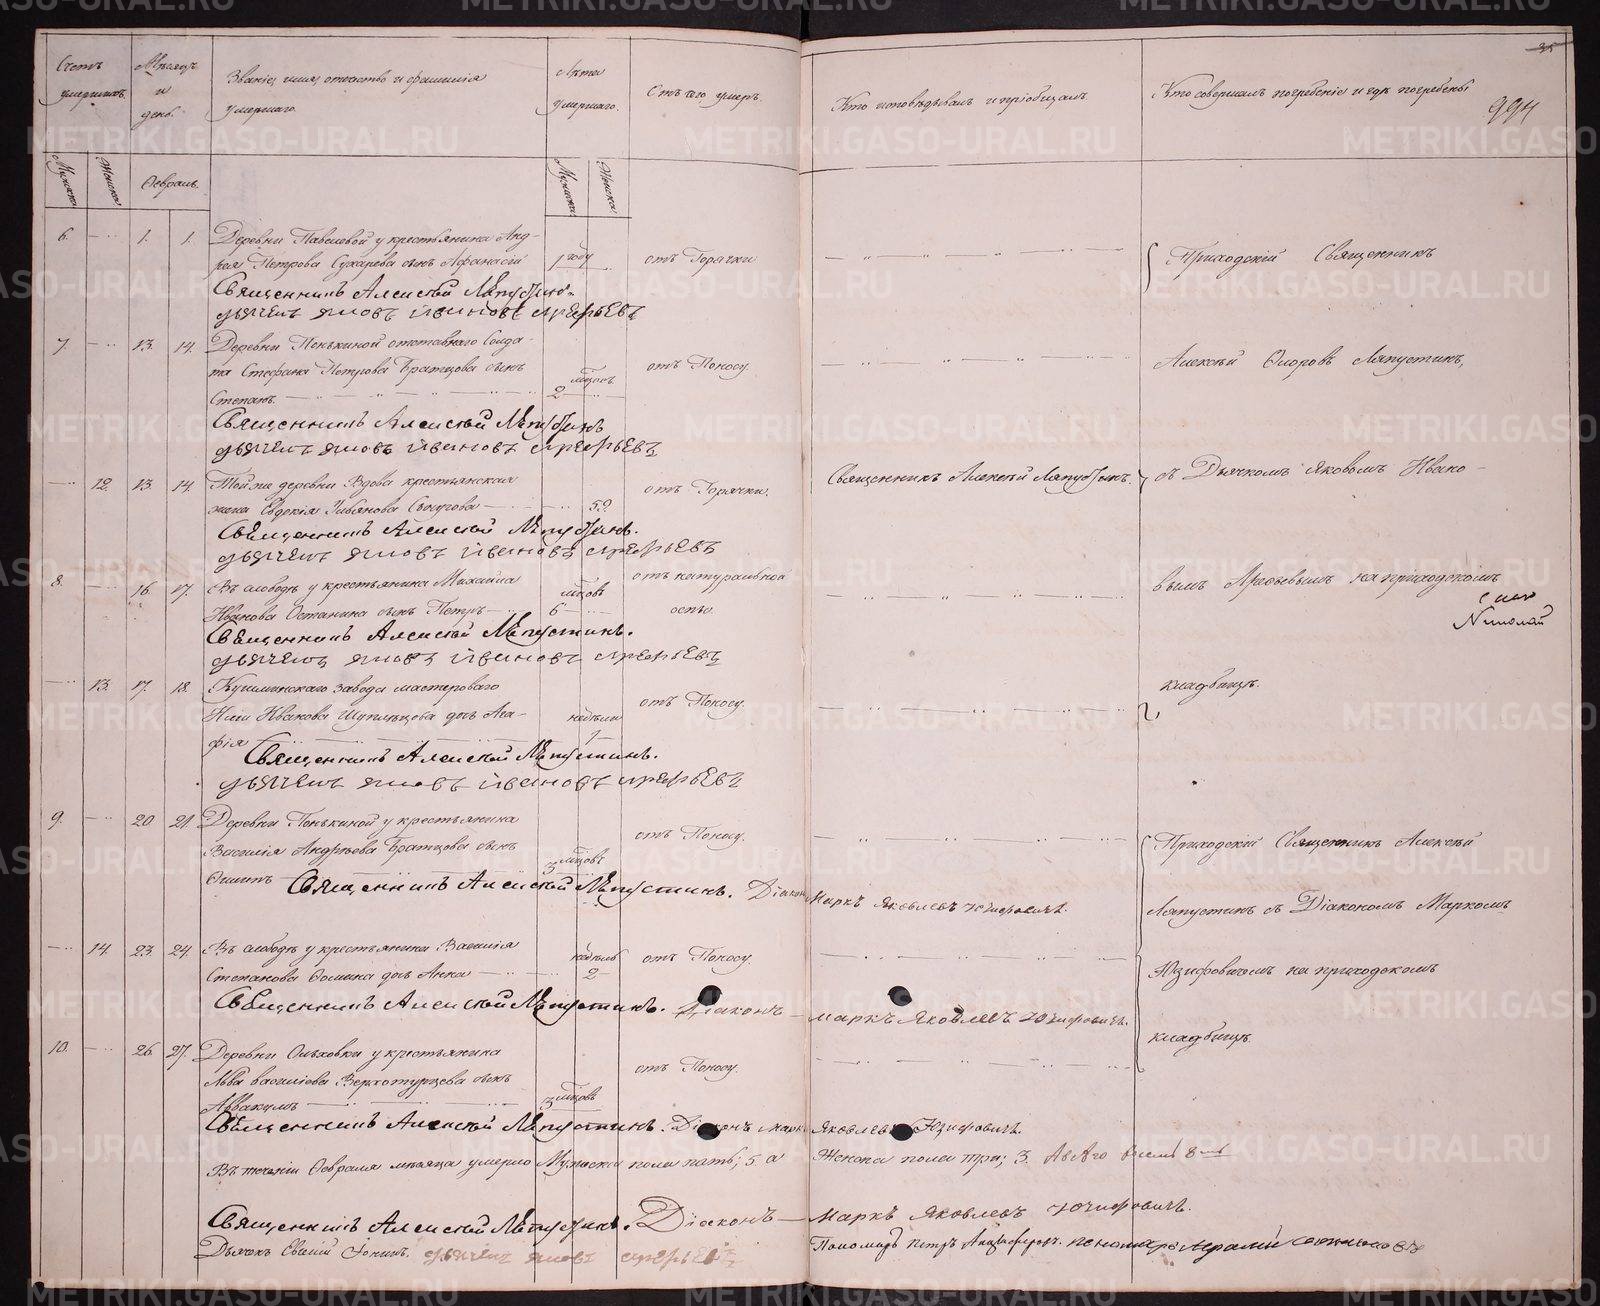 Счетъ умершихъ.
Мѣсяцъ и день.
Званіе, имя, отчество и фамилія умершаго.
Лѣта умершаго.
Отъ чего умеръ.
Кто исповѣдывалъ и пріобщалъ.
Кто совершалъ погребеніе и гдѣ погребены
35
994
Мужеска
Женска
Февраль.
Мужеска
Женска
6. 1. 1. Деревни Павловой у крестьянина Анд-
рея Петрова Сухарева сынъ Афанасій 1 году отъ Горячки
Приходскій Священникъ
Священникъ Алексѣй Лапустинъ.
дьячекъ Яковъ Ивановъ Арефьевъ
7. 13. 14. Деревни Пенькиной отставнаго Солда-
та Стефана Петрова Братцова сынъ 2 мѣсяцъ отъ Поносу.
Алексѣй Ѳедоровъ Лапустинъ,
Степанъ.
Священникъ Алексѣй Лапустинъ
дьячекъ Яковъ Ивановъ Арефьевъ
12. 13. 14. Той же деревни Вдова крестьянская
жена Евдокія Ульянова 59. отъ Горячки.
Священникъ Алексѣй Лапустинъ.
съ Дьячкомъ Яковомъ Ивано-
Священникъ Алексѣй Лапустинъ.
дьячекъ Яковъ Ивановъ Арефьевъ
8. 16. 17. Въ слободѣ у крестьянина Михайла
Иванова Останина сынъ Петръ 6 мѣсцовъ отъ натуральной
оспы.
вымъ Арефьевымъ на приходскомъ
Николай
Священникъ Алексѣй Лапустинъ.
дьячекъ Яковъ Ивановъ Арефьевъ
13. 17. 18. Кушвинскаго завода мастероваго
Ильи Иванова дочь Ага- недѣли 1 отъ Поносу.
кладбищѣ.
фія
Священникъ Алексѣй Лапустинъ.
дьячекъ Яковъ Ивановъ Арефьевъ
9. 20. 21. Деревни Пенькиной у крестьянина
Василія Андрѣева Братцова сынъ 3 мѣсцовъ отъ Поносу.
Приходскій Священникъ Алексѣй
Священникъ Алексѣй Лапустинъ. Діаконъ Маркъ Яковлевъ Юзифовичъ.
Лапустинъ съ Діакономъ Маркомъ
14. 23. 24. Въ слободѣ у крестьянина Василія
Степанова Ѳомина дочь Анна недѣль 2 отъ Поносу.
Юзифовичемъ на приходскомъ
Священникъ Алексѣй Лапустинъ. Діаконъ Маркъ Яковлевъ Юзифовичъ.
кладбищѣ.
10. 26. 27. Деревни Ольховки у крестьянина
Льва Василіева Верхотурцева сынъ отъ Поносу.
Аввакумъ 3 мѣсцовъ
Священникъ Алексѣй Лапустинъ. Діаконъ Маркъ Яковлевъ Юзифовичъ.
Въ теченіи Февраля мѣсяца умерло Мужеска пола пять; 5 а Женска пола три; 3. А всего восемь 8
Священникъ Алексѣй Лапустинъ. Діаконъ Маркъ Яковлевъ Юзифовичъ.
Дьячекъ дьячекъ Яковъ Арефьевъ Пономарь Петръ
METRIKI.GASO-URAL.RU